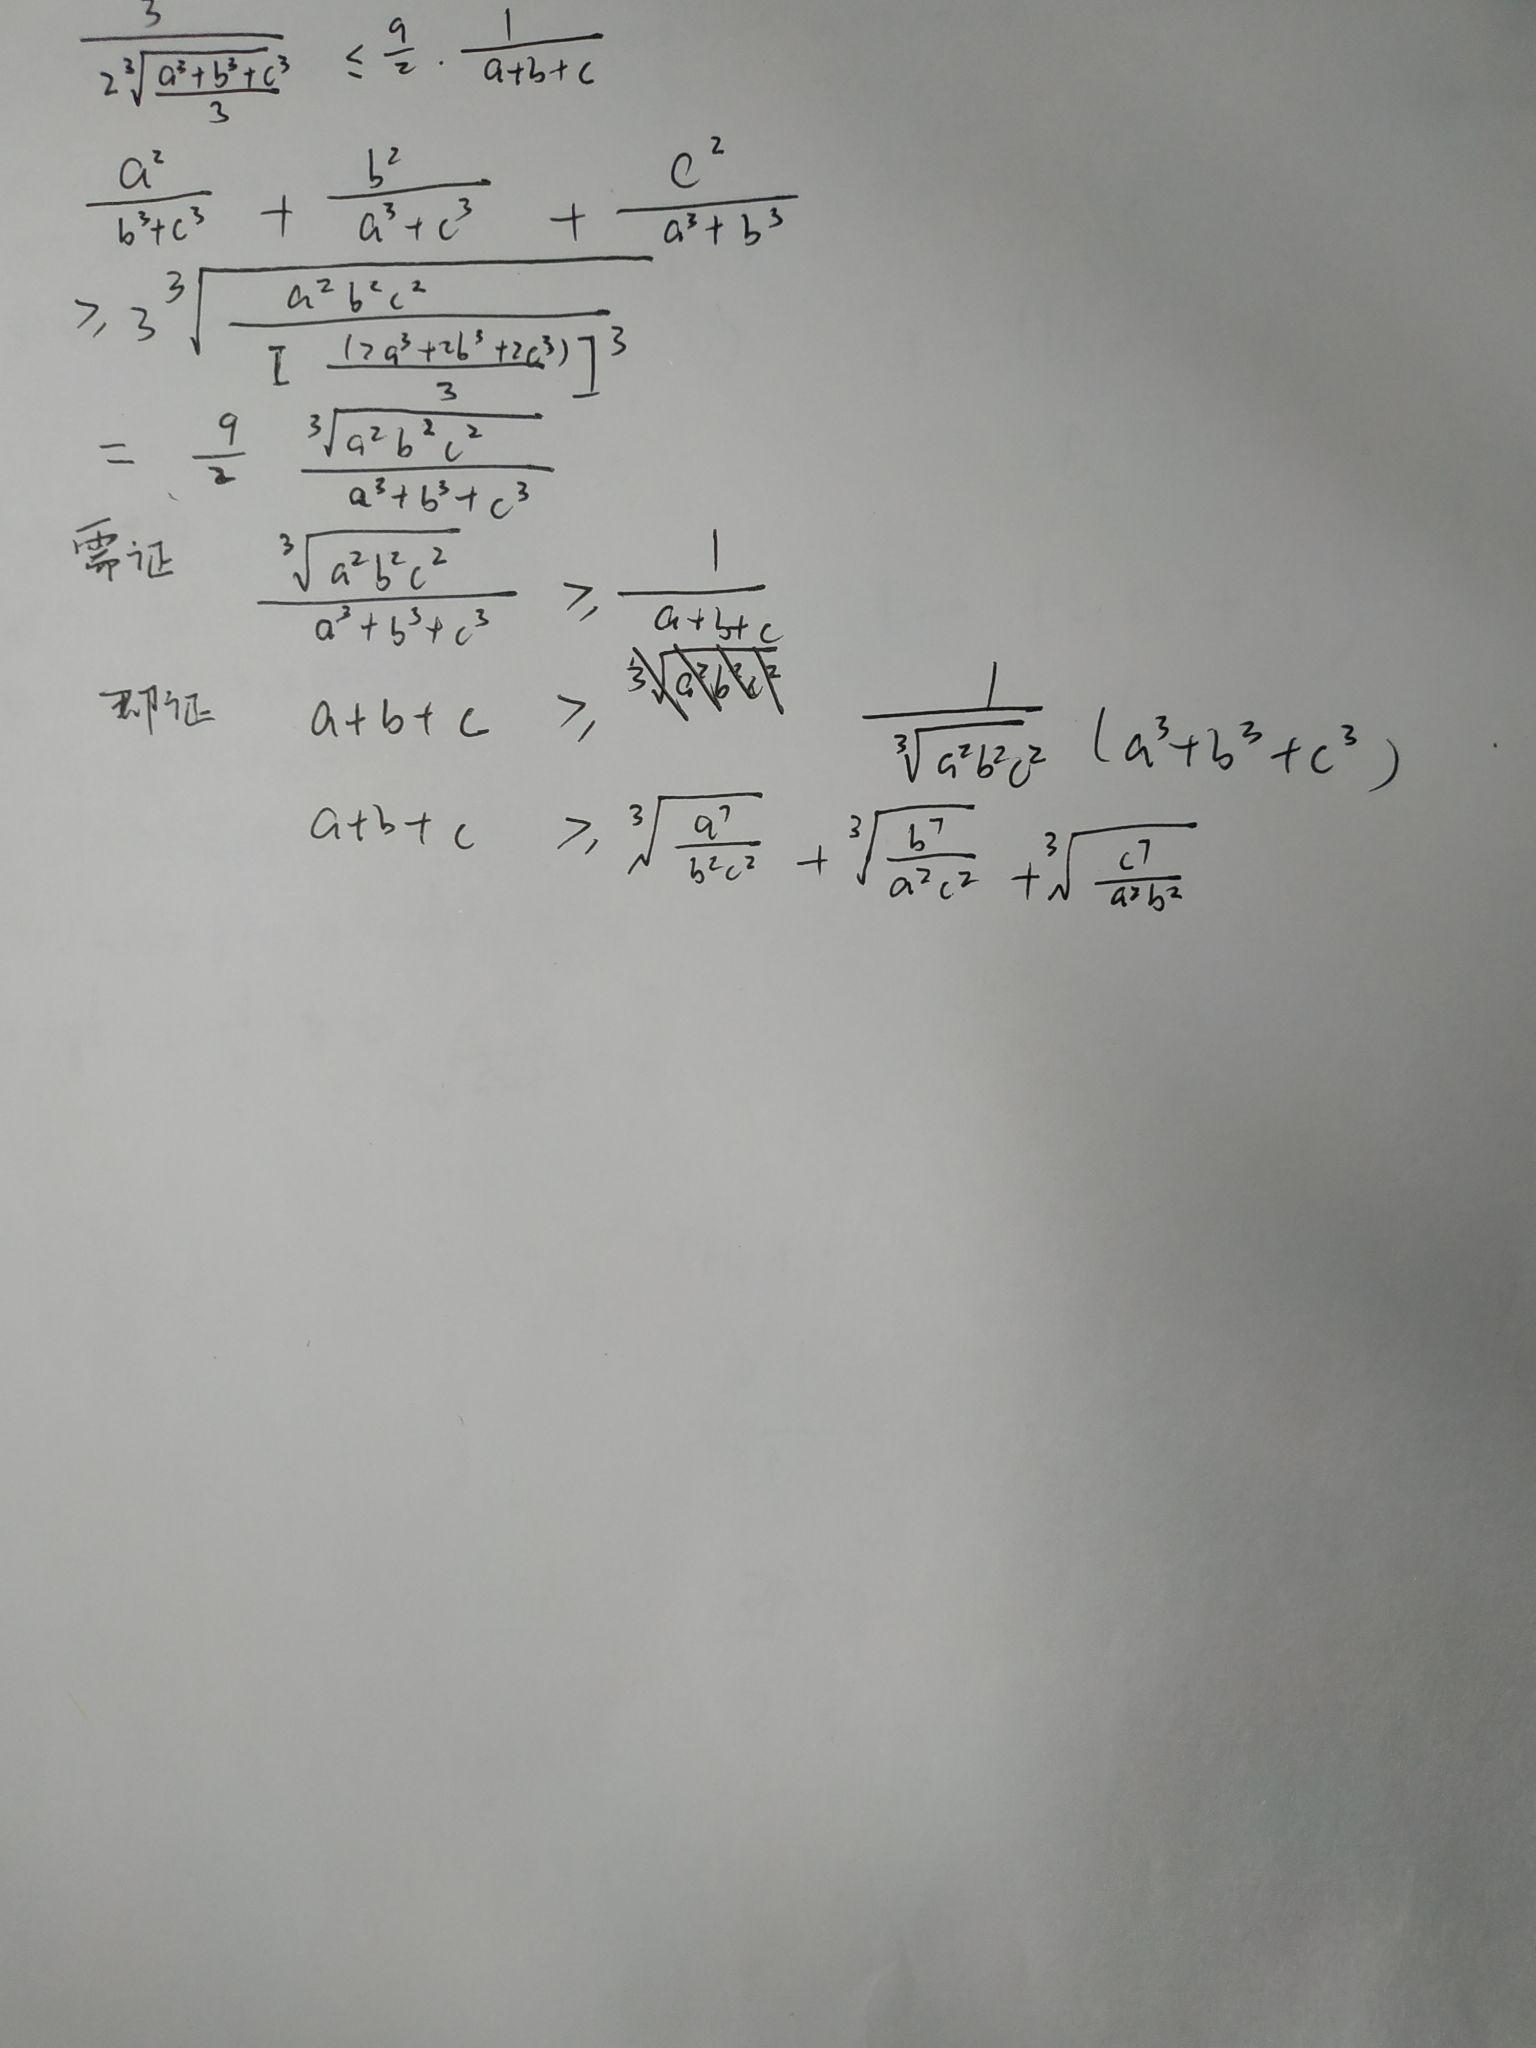 3/(2∛((a³+b³+c³)/3)) ≤ 9/2 · 1/(a+b+c)
a²/(b³+c³) + b²/(a³+c³) + c²/(a³+b³)
≥ 3∛(a²b²c²/[(2a³+2b³+2c³)/3]³)
= 9/2 ∛(a²b²c²)/(a³+b³+c³)
需证 ∛(a²b²c²)/(a³+b³+c³) ≥ 1/(a+b+c)
即证 a+b+c ≥ 1/∛(a²b²c²) (a³+b³+c³)
a+b+c ≥ ∛(a⁷/(b²c²)) + ∛(b⁷/(a²c²)) + ∛(c⁷/(a²b²))